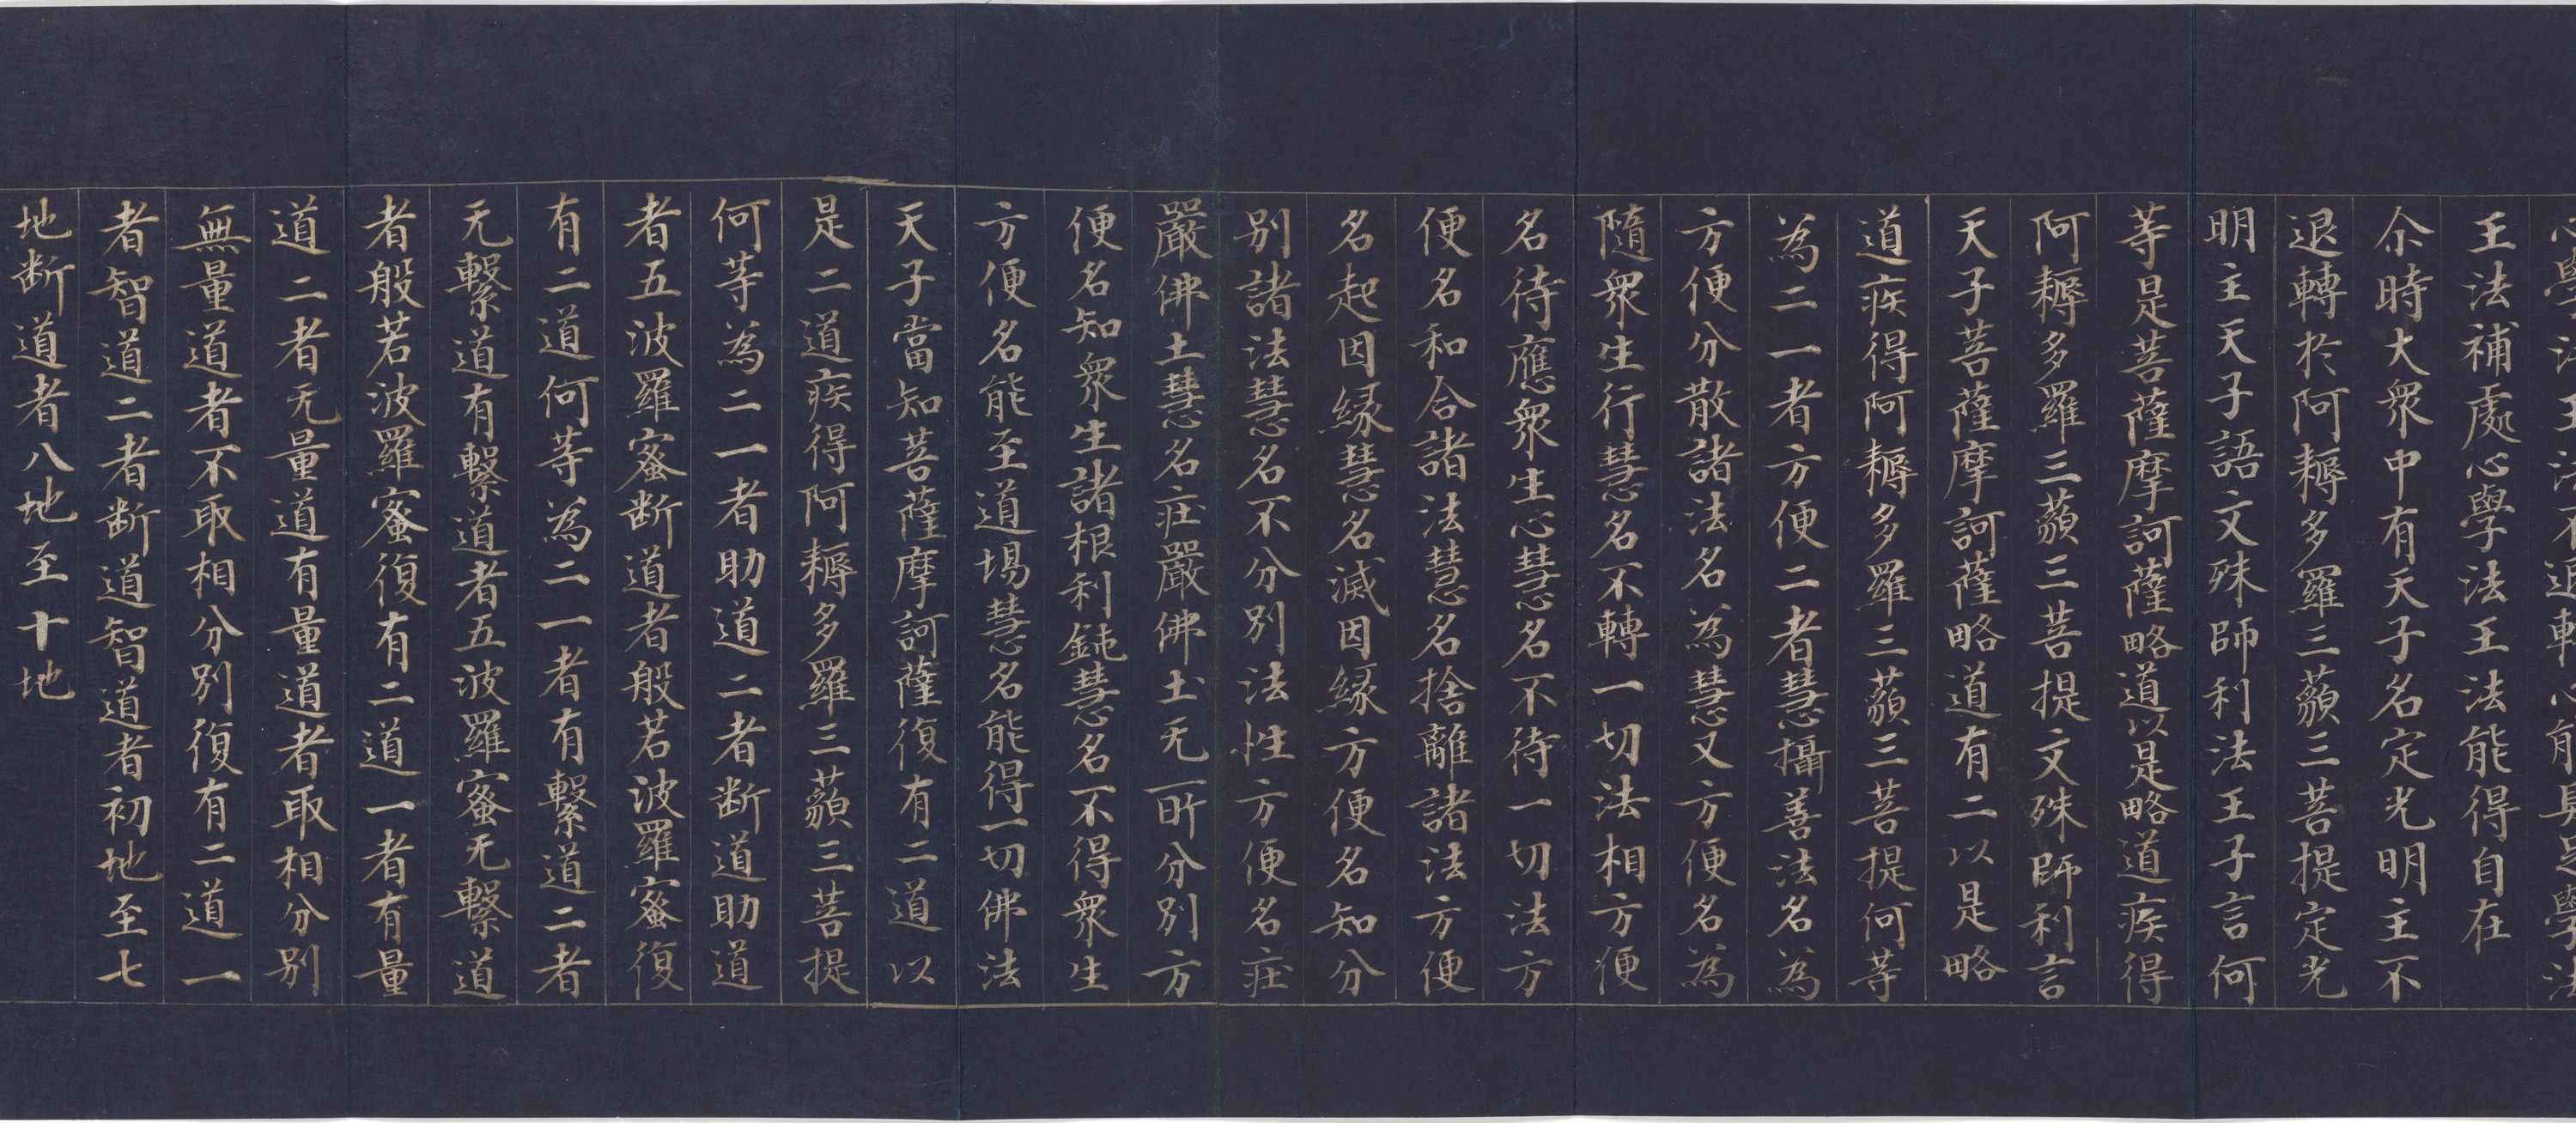 王法補處心學法王法能得自在
尒時大衆中有天子名定光明主不
退轉於阿耨多羅三藐三菩提定光
明主天子語文殊師利法王子言何
等是菩薩摩訶薩略道以是略道疾得
阿耨多羅三藐三菩提文殊師利言
天子菩薩摩訶薩略道有二以是略
道疾得阿耨多羅三藐三菩提何等
為二一者方便二者慧攝善法名為
方便分散諸法名為慧又方便名為
隨衆生行慧名不轉一切法相方便
名待應衆生心慧名不待一切法方
便名和合諸法慧名捨離諸法方便
名起因緣慧名滅因緣方便名知分
别諸法慧名不分别法性方便名莊
嚴佛土慧名莊嚴佛土无一所分别方
便名知衆生諸根利鈍慧名不得衆生
方便名能至道場慧名能得一切佛法
天子當知菩薩摩訶薩復有二道以
是二道疾得阿耨多羅三藐三菩提
何等為二一者助道二者断道助道
者五波羅蜜断道者般若波羅蜜復
有二道何等為二一者有繫道二者
无繫道有繫道者五波羅蜜无繫道
者般若波羅蜜復有二道一者有量
道二者无量道有量道者取相分别
無量道者不取相分别復有二道一
者智道二者断道智道者初地至七
地断道者八地至十地